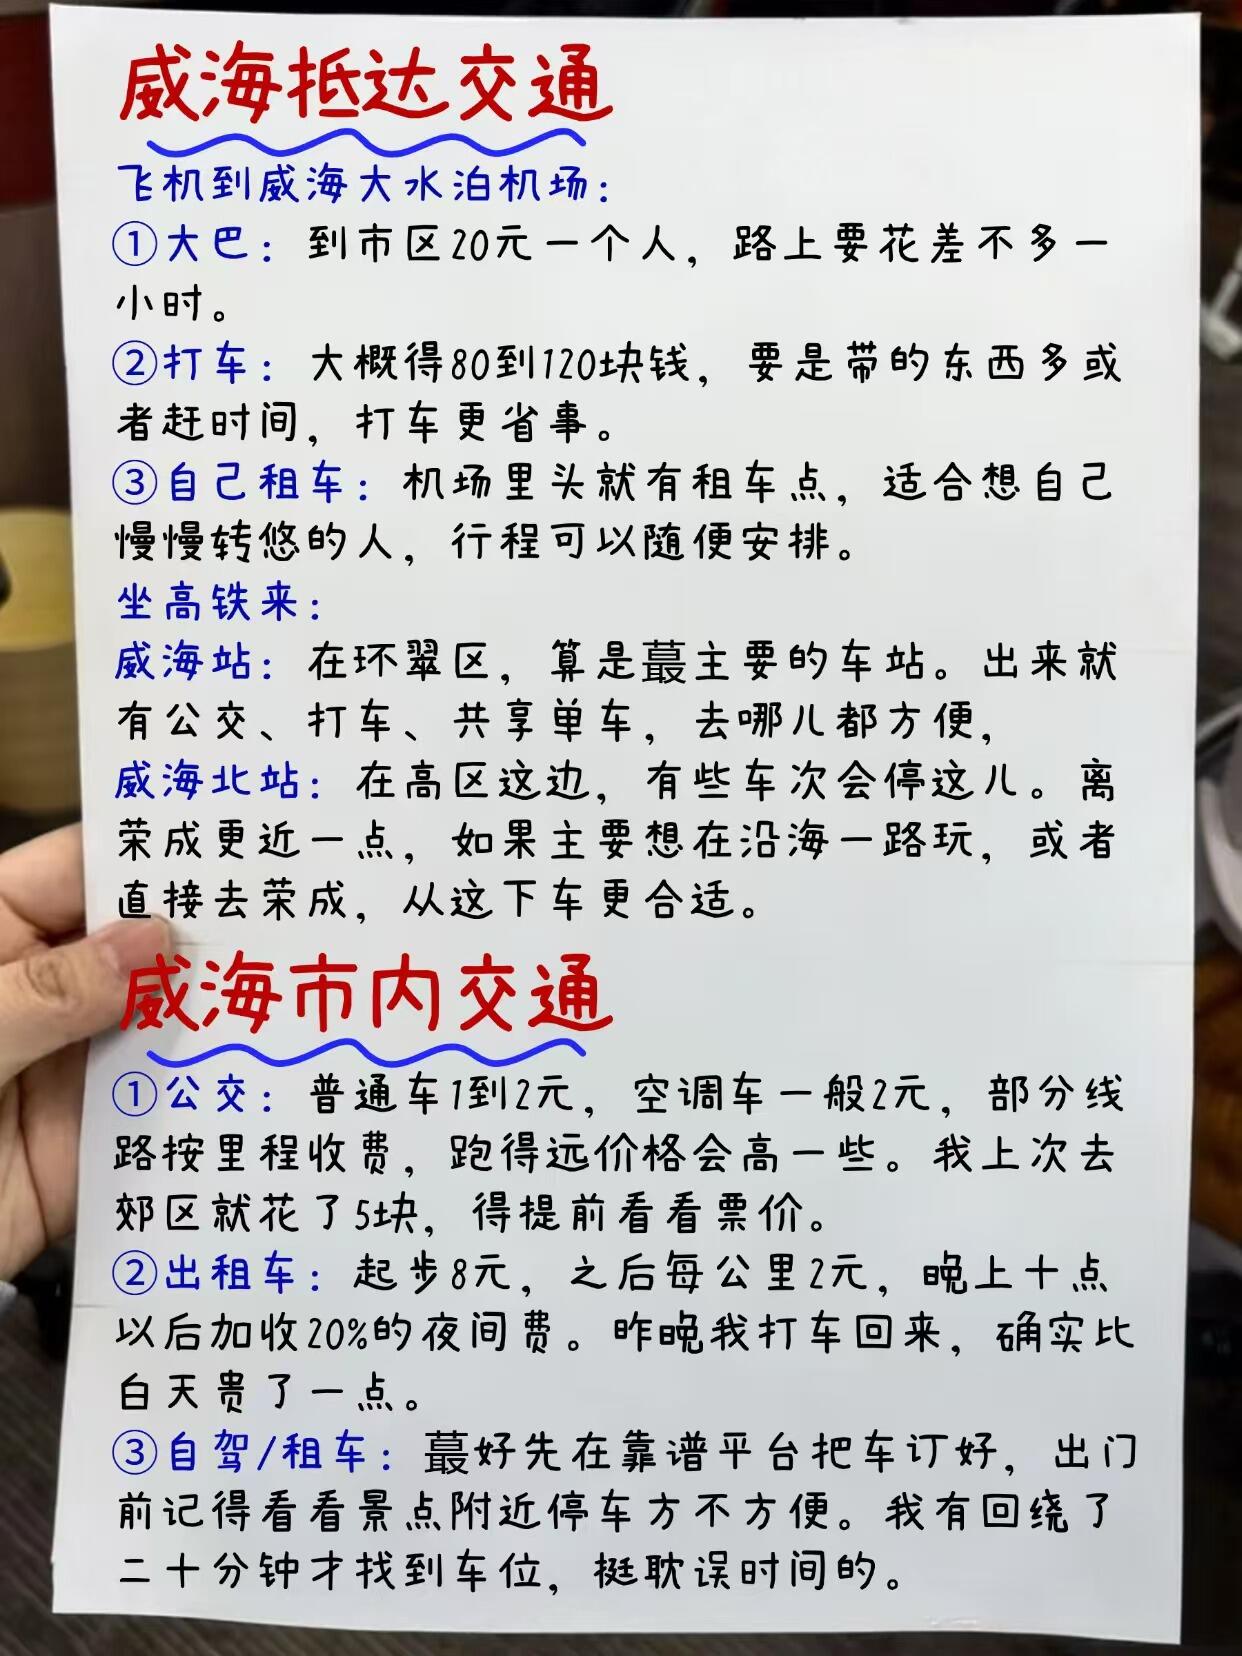 威海抵达交通
飞机到威海大水泊机场：
①大巴：到市区20元一个人，路上要花差不多一
小时。
②打车：大概得80到120块钱，要是带的东西多或
者赶时间，打车更省事。
③自己租车：机场里头就有租车点，适合想自己
慢慢转悠的人，行程可以随便安排。
坐高铁来：
威海站：在环翠区，算是蕞主要的车站。出来就
有公交、打车、共享单车，去哪儿都方便，
威海北站：在高区这边，有些车次会停这儿。离
荣成更近一点，如果主要想在沿海一路玩，或者
直接去荣成，从这下车更合适。
威海市内交通
①公交：普通车1到2元，空调车一般2元，部分线
路按里程收费，跑得远价格会高一些。我上次去
郊区就花了5块，得提前看看票价。
②出租车：起步8元，之后每公里2元，晚上十点
以后加收20%的夜间费。昨晚我打车回来，确实比
白天贵了一点。
③自驾/租车：蕞好先在靠谱平台把车订好，出门
前记得看看景点附近停车方不方便。我有回绕了
二十分钟才找到车位，挺耽误时间的。